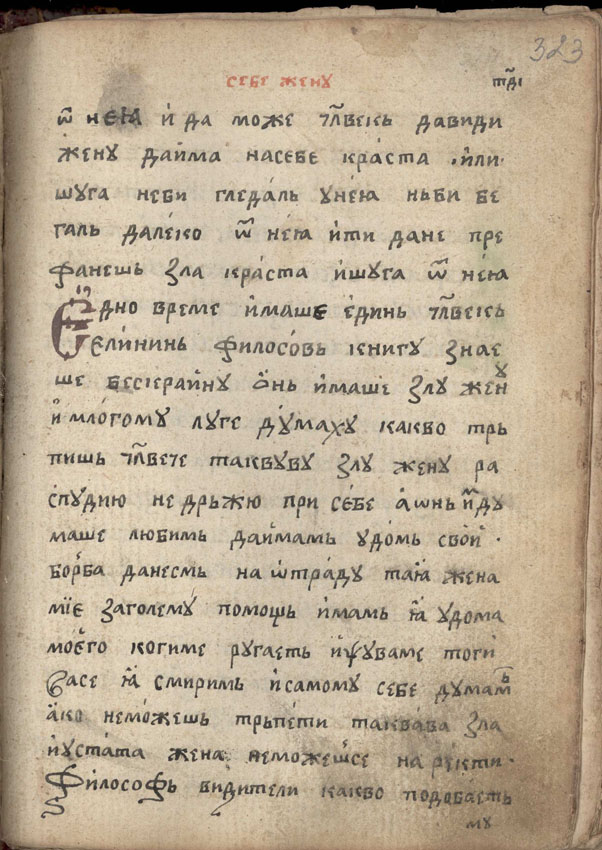 323
себе женꙋ
тд҃і
ѿ нею и да може чл҃векь давиди
женꙋ дайма насебе краста · или
шꙋга неби гледаль ꙋнею ньби бе
галь далеко ѿ нею ити дане пре
фанешь зла краста ишꙋга ѿ нею
Едно време имаше единь чл҃векь
елининь философь книгꙋ знае
ше бескрайнꙋ онь имаше злꙋ женꙋ
и млогомꙋ лꙋге дꙋмахꙋ какво трь
пишь чл҃вече таквꙋвꙋ злꙋ женꙋ ра
спꙋдию не дрьжю при себе а ѡнь им дꙋ
маше любимь даймамь ꙋдомь свой ·
борба данесмь на ѡтрадꙋ таꙗ жена
міе заголемꙋ помощь имамь ю ꙋдома
моего когиме рꙋгаеть иѱꙋваме тоги
васе ю смиримь исамомꙋ себе дꙋмамь
ако неможешь трьпети таквава зла
иꙋстата жена неможешсе на ректи ·
Философь видители какво подобаеть
мꙋ